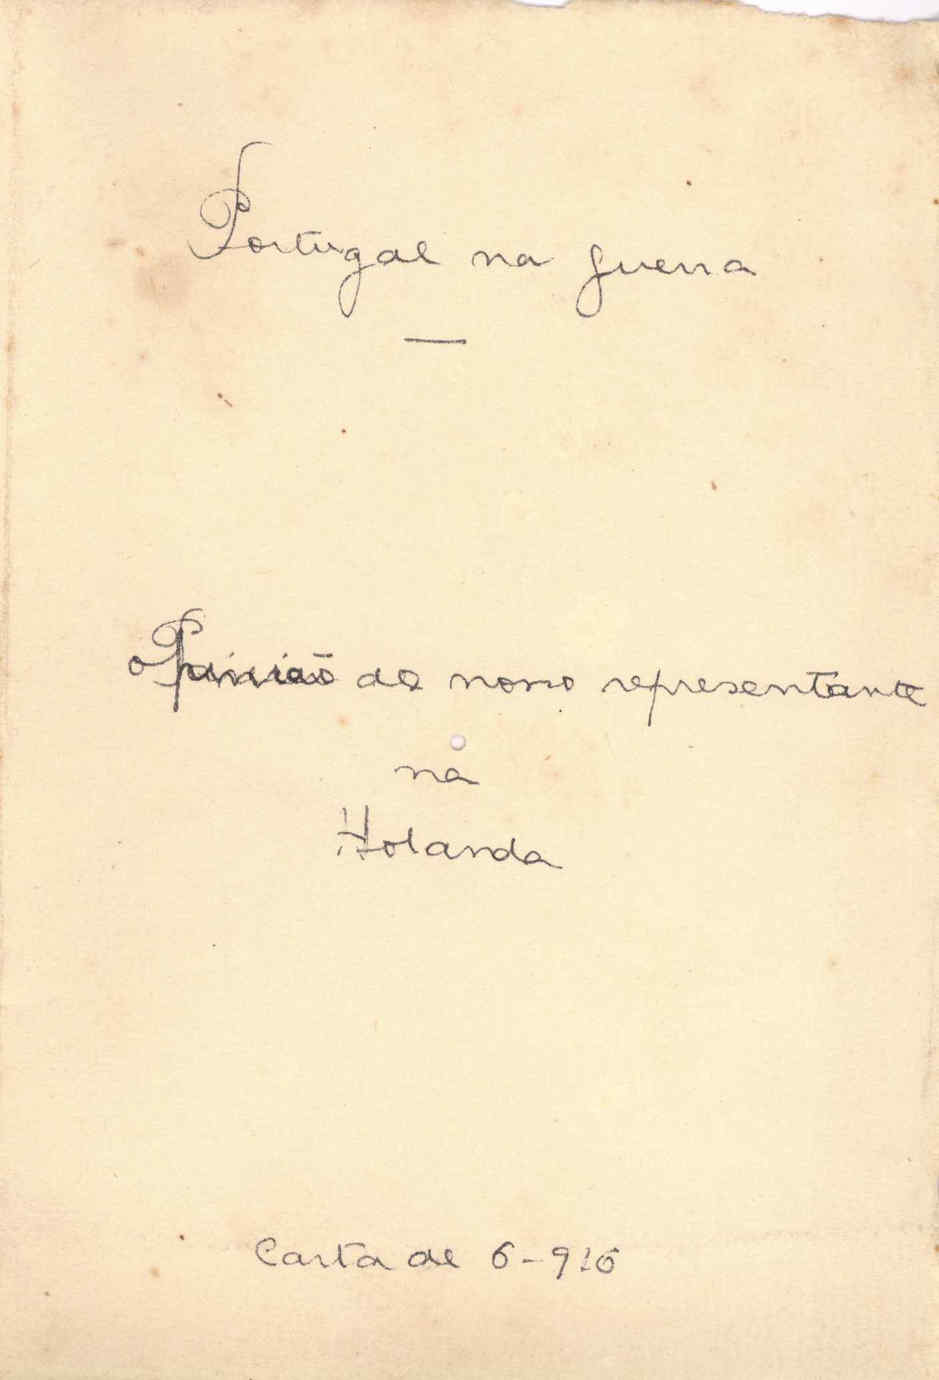 Portugal na guerra
—
Opinião do nosso representante
na
Holanda
Carta de 6-916